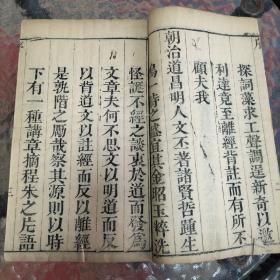 探詞藻求工聲調逞新奇以邀
利達竟至離經背註而有所不
顧夫我
朝治道昌明人文丕著諸賢哲踵生
時之基宜其金昭玉粹洗
怪誕不經之談裒於道而發為
文章夫何不思文以明道而反
以背道文以註經而反以離經
是孰階之厲哉察其源則以時
下有一種講章摘程朱之片語